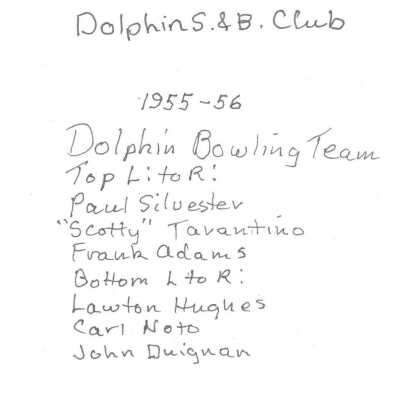 Dolphin S. & B. Club
1955-56
Dolphin Bowling Team
Top L to R:
Paul Silvester
"Scotty" Tarantino
Frank Adams
Bottom L to R:
Lawton Hughes
Carl Noto
John Duignan